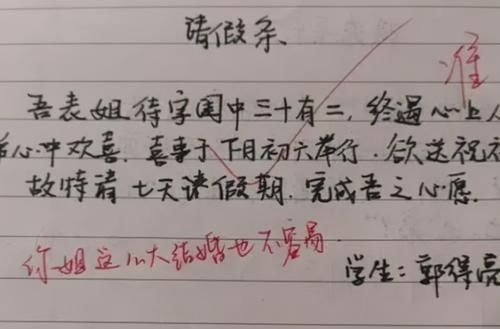 请假条、
准
吾表姐待字闺中三十有二,终遇心上人
心中欢喜.喜事于下月初六举行.欲送祝
故特请七天假期.完成吾之心愿.
你姐这么大结婚也不容易
学生:郭得亮